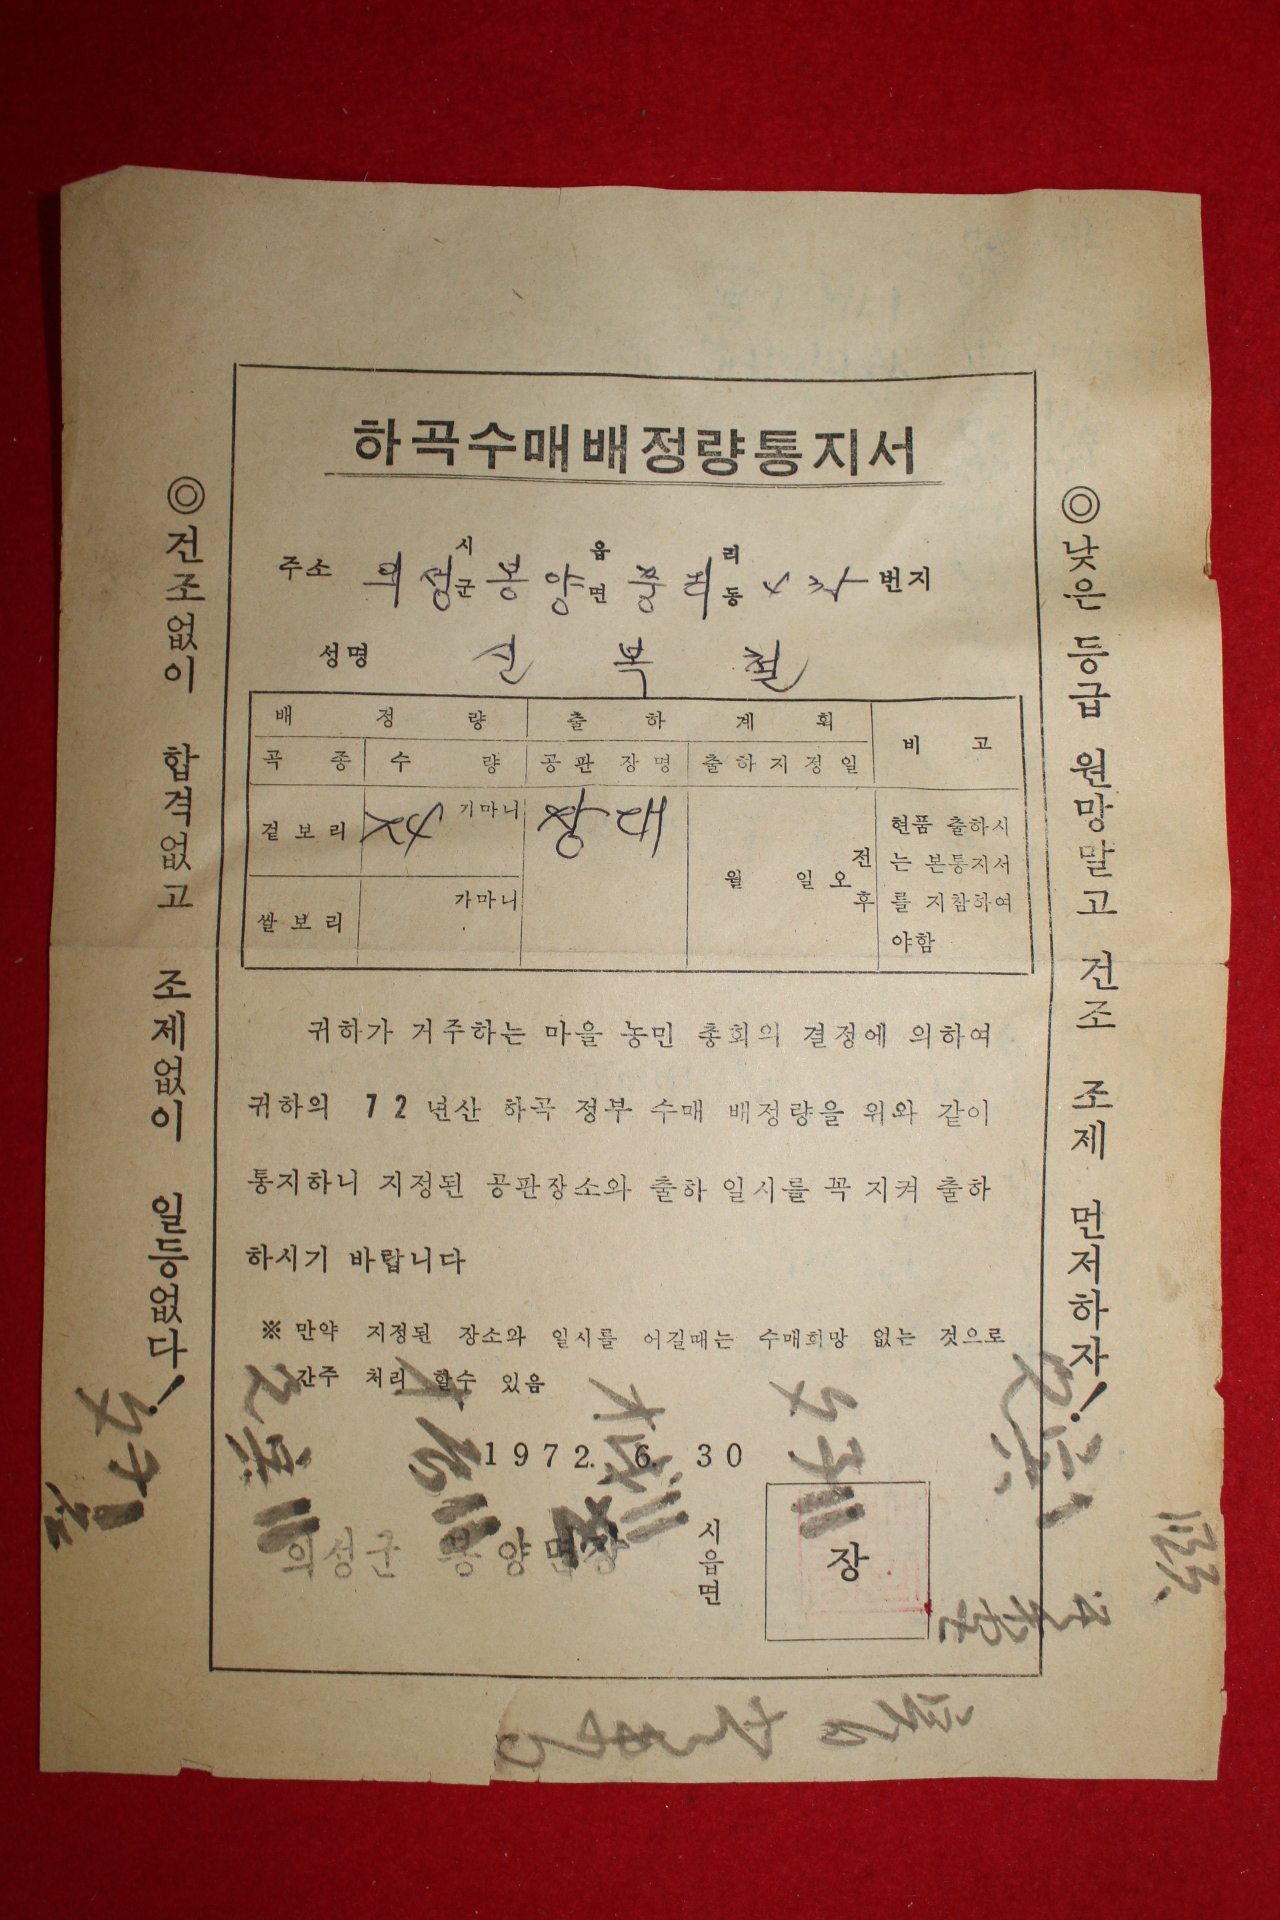 하곡수매배정량통지서
주소 의성 시 군 봉양 읍 면 중리 리 동 번지
성명 신복철
배정량 출하계획 비고
곡종 수량 공판장명 출하지정일
겉보리 기마니 장대 월 일 오 전 후
쌀보리 가마니
현품 출하시
는 본통지서
를 지참하여
야함
귀하가 거주하는 마을 농민 총회의 결정에 의하여
귀하의 72년산 하곡 정부 수매 배정량을 위와 같이
통지하니 지정된 공판장소와 출하 일시를 꼭 지켜 출하
하시기 바랍니다
※ 만약 지정된 장소와 일시를 어길때는 수매희망 없는 것으로
간주 처리 할수 있음
1972. 6. 30
의성군 봉양면장 시 읍 면 장
◎낮은 등급 원망말고 건조 조제 먼저하자!
◎건조없이 합격없고 조제없이 일등없다!